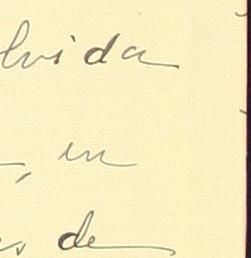 lvida
, in
, de